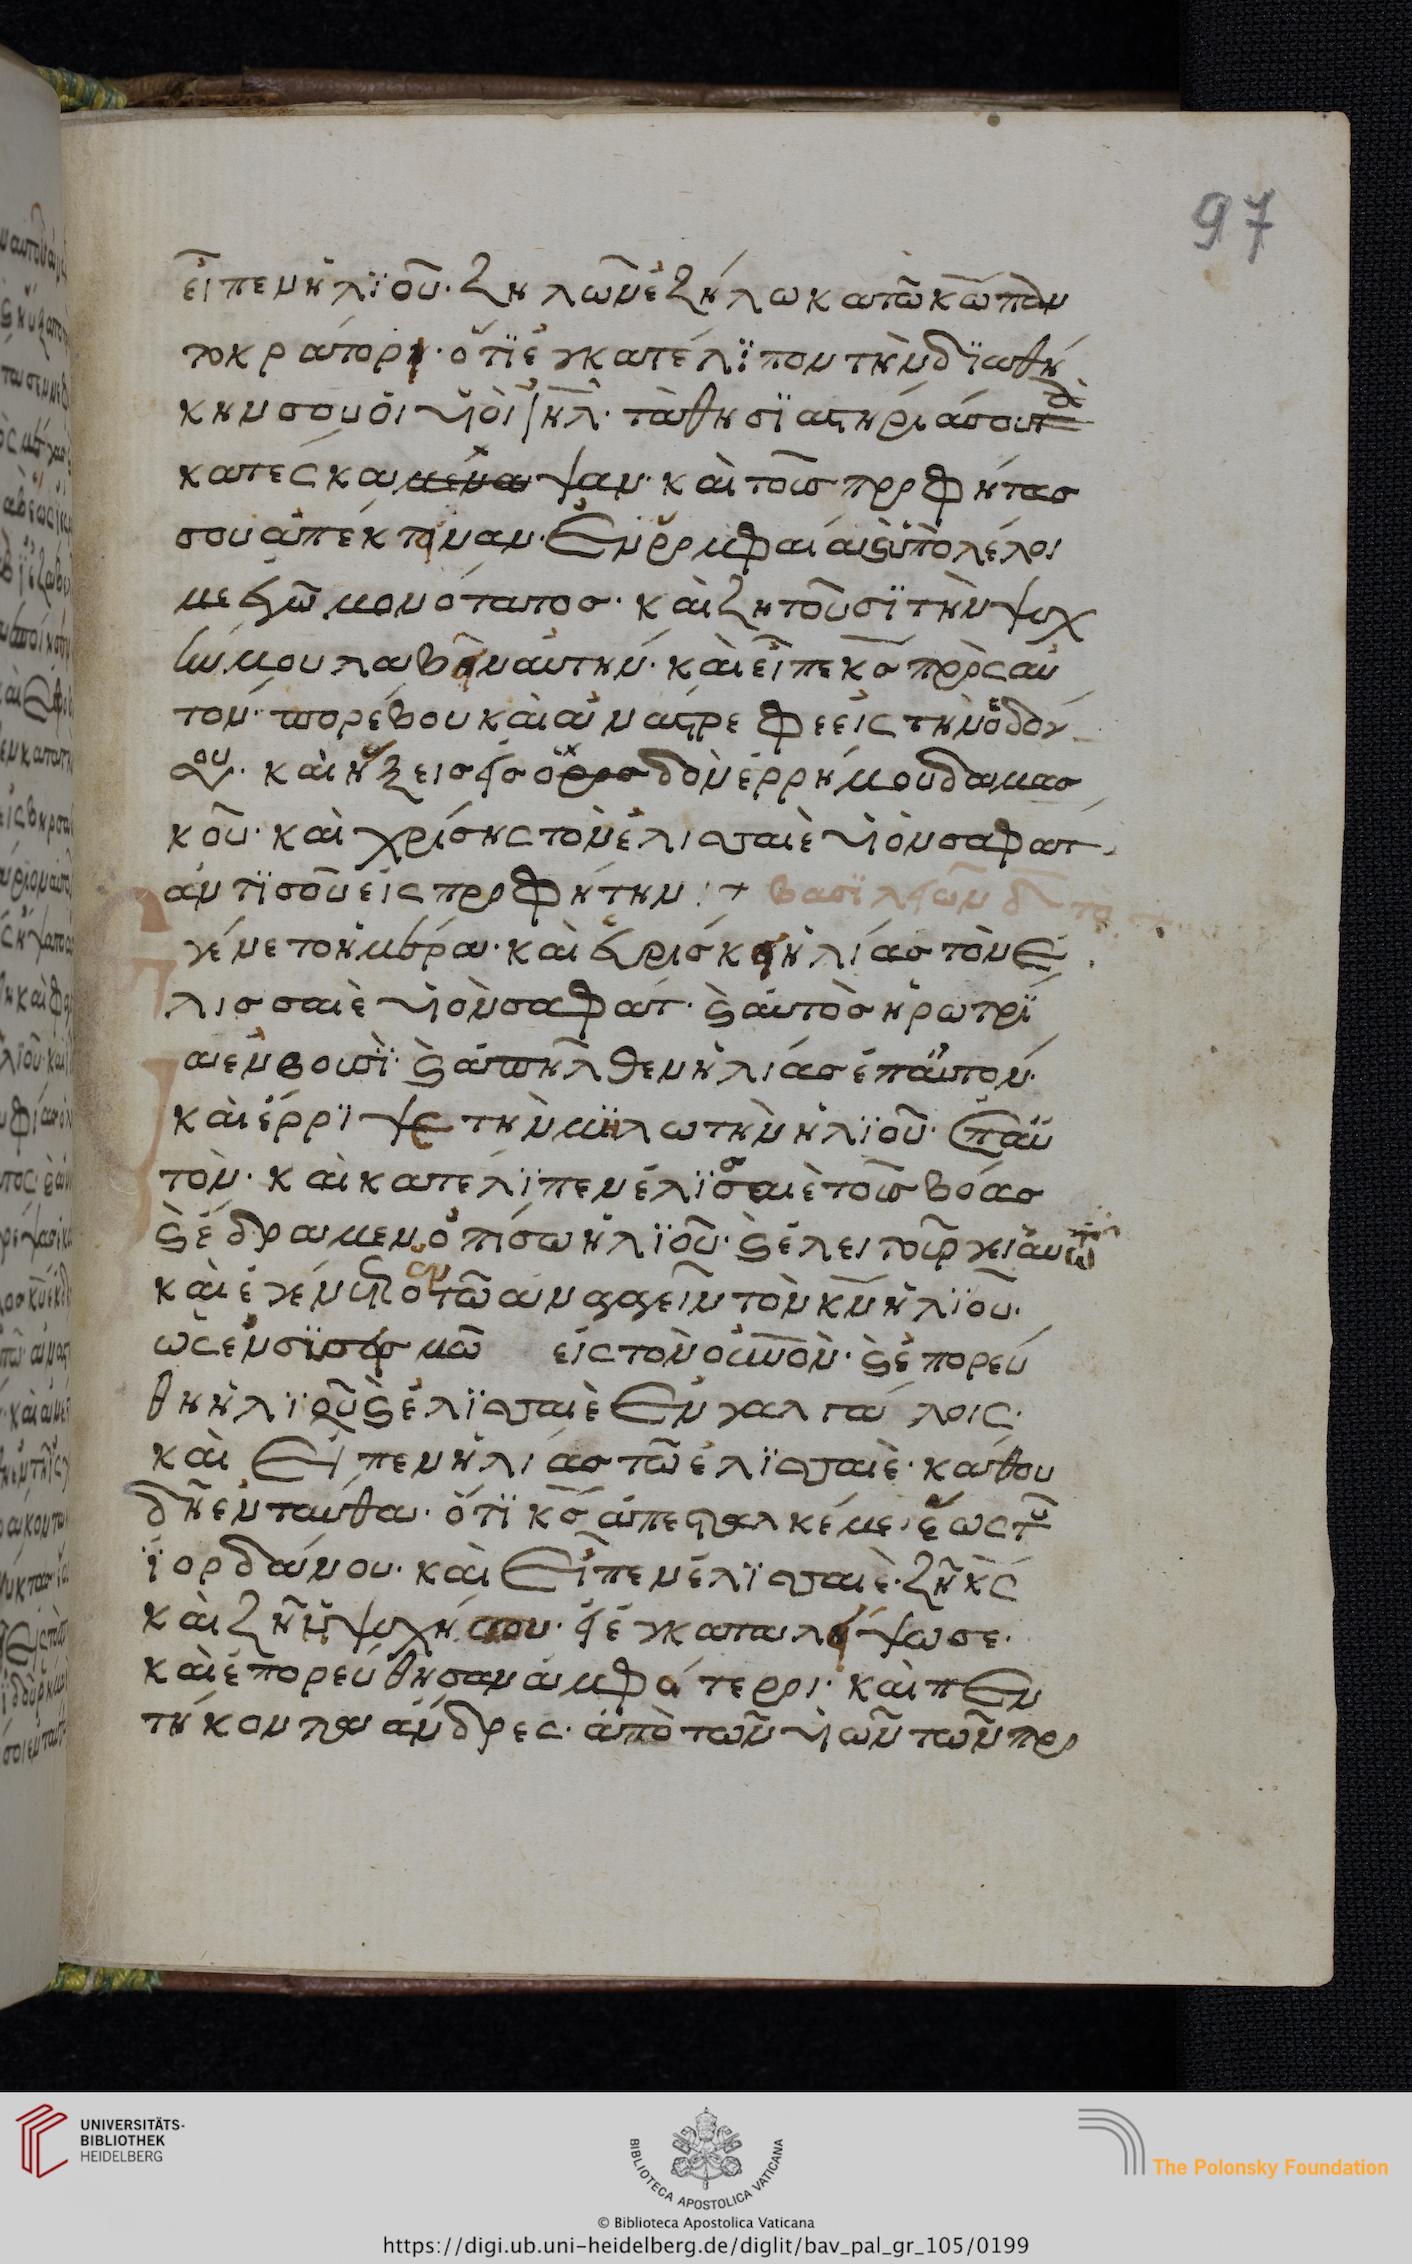 97
εἶπεν ἠλϊοῦ· ζηλῶν ἐζήλωκα τῶ κῶ παν
τοκράτορι· ὅτϊ ἐγκατέλϊπον τὴν δϊαθή
κην σου οἱ υἱοὶ ιηλ· τὰ θησϊαστήριά σου
κατέσκαψαν· καὶ τοὺς προφήτας
σου ἀπέκτιναν· ἐν ῥομφαία καὶ ὑπολέλοι
με ἐγὼ μονότατος· καὶ ζητοῦσϊ τὴν ψυχ
ήν μου λαβεῖν αὐτήν· καὶ εἶπε κς πρὸς αὐ
τόν· πορέβου καὶ ἀναστρεφε εἰς τὴν ὁδόν
σου· καὶ ἥξεις εἰς ὁδὸν ἐρρήμου δαμασ
κοῦ· καὶ χρίσης τὸν ἐλισσαιὲ υἱὸν σαφατ
ἀντϊ σοῦ εἰς προφήτην :+ βασϊλειῶν δ
γένετο ἡμέρα· καὶ εὑρίσκει ἠλίας τὸν ἐ
λισσαιὲ υἱὸν σαφάτ· καὶ αὐτὸς ἠρωτρϊ
α ἐν βουσὶ· καὶ ἀπῆλθεν ἠλίας ἐπ αὐτον·
καὶ ἔρριψε τὴν μϊλωτὴν ἠλϊοῦ· ἐπ αὐ
τὸν· καὶ κατέλϊπεν ἐλϊσσαιὲ τοὺς βόας
καὶ ἔδραμεν ὀπίσω ἠλϊοῦ· καὶ ἐλειτούργει αὐτῶ
καὶ ἐγένετο ἐν τῶ ἀναγαγεῖν τὸν κν ἠλϊου·
ὡς ἐν σϊσεισμῶ εἰς τὸν οὐνὸν· καὶ ἐπορεύ
θη ἠλϊοῦ καὶ ἐλϊσσαιὲ ἐν γαλγάλοις·
καὶ εἶπεν ἠλίας τῶ ἐλϊσσαιὲ· κάθου
δὴ ἐνταύθα· ὅτϊ κς ἀπέσταλκέ με· ἕως τοῦ
ϊορδάνου· καὶ εἶπεν ἐλϊσσαιὲ· ζῆ κς
καὶ ζῆ ἡ ψυχή σου· εἰ ἐγκαταλείψω σε·
καὶ ἐπορεύθησαν ἀμφότεροι· καὶ πεν
τήκοντα ἄνδρες· ἀπὸ τῶν υἱῶν τῶν προ
UNIVERSITÄTS-
BIBLIOTHEK
HEIDELBERG
BIBLIOTECA APOSTOLICA VATICANA
The Polonsky Foundation
© Biblioteca Apostolica Vaticana
https://digi.ub.uni-heidelberg.de/diglit/bav_pal_gr_105/0199